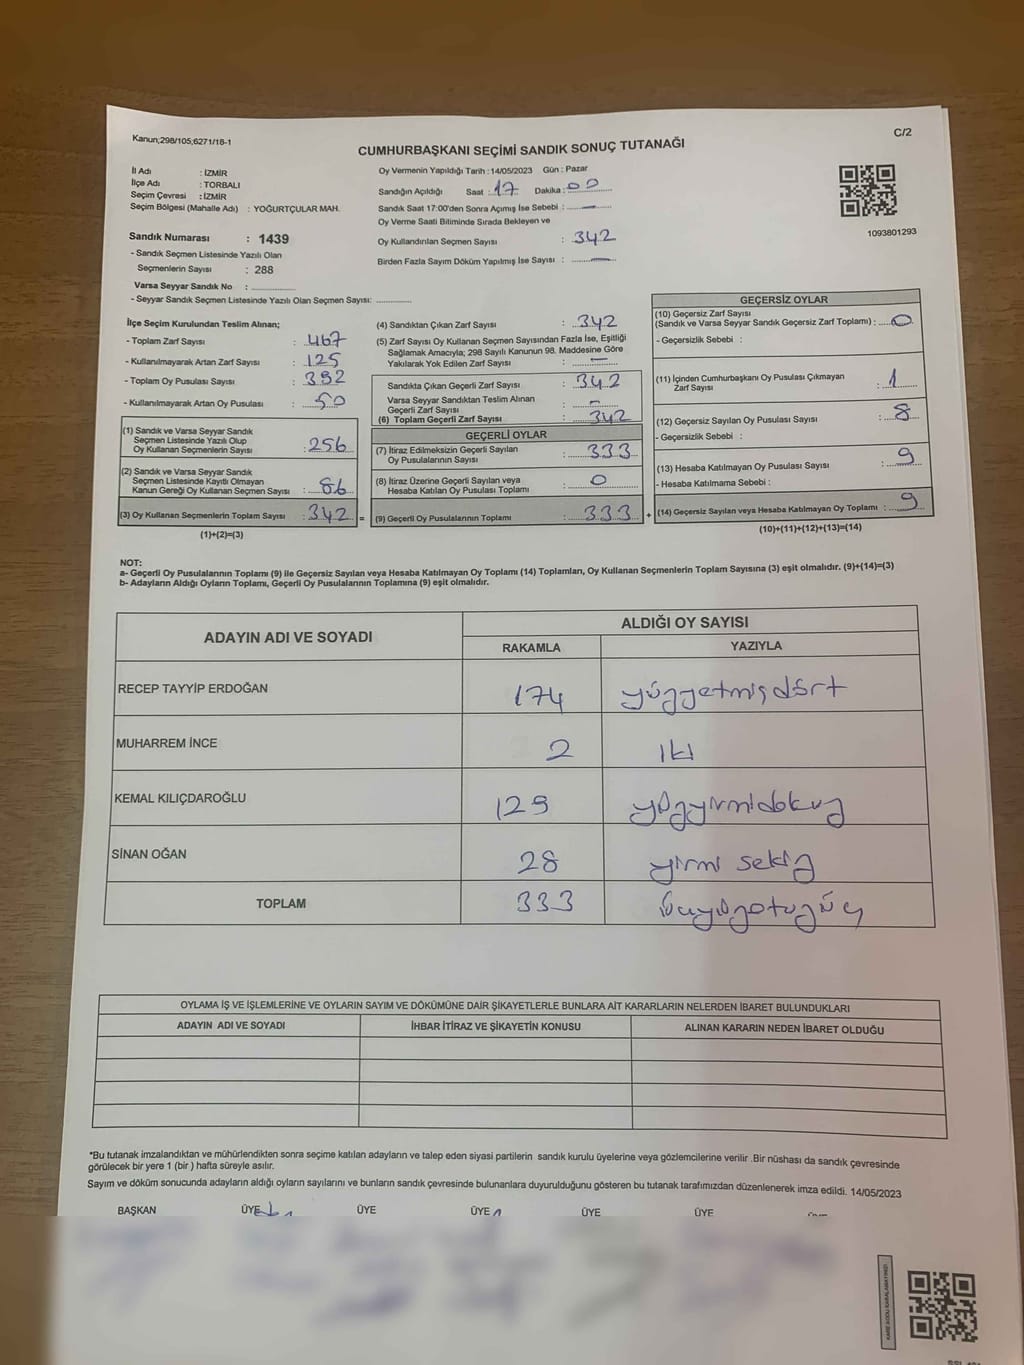 Kanun;298/105;6271/18-1
C/2
CUMHURBAŞKANI SEÇİMİ SANDIK SONUÇ TUTANAĞI
İl Adı : İZMİR
İlçe Adı : TORBALI
Seçim Çevresi : İZMİR
Seçim Bölgesi (Mahalle Adı) : YOĞURTÇULAR MAH.
Sandık Numarası : 1439
- Sandık Seçmen Listesinde Yazılı Olan
Seçmenlerin Sayısı : 288
Varsa Seyyar Sandık No :
- Seyyar Sandık Seçmen Listesinde Yazılı Olan Seçmen Sayısı:
Oy Vermenin Yapıldığı Tarih : 14/05/2023 Gün : Pazar
Sandığın Açıldığı Saat : 17 Dakika : 00
Sandık Saat 17:00'den Sonra Açımış İse Sebebi : —
Oy Verme Saati Bitiminde Sırada Bekleyen ve
Oy Kullandırılan Seçmen Sayısı : 342
Birden Fazla Sayım Döküm Yapılmış İse Sayısı : —
1093801293
İlçe Seçim Kurulundan Teslim Alınan;
- Toplam Zarf Sayısı : 467
- Kullanılmayarak Artan Zarf Sayısı : 125
- Toplam Oy Pusulası Sayısı : 392
- Kullanılmayarak Artan Oy Pusulası : 50
(1) Sandık ve Varsa Seyyar Sandık
Seçmen Listesinde Yazılı Olup
Oy Kullanan Seçmenlerin Sayısı : 256
(2) Sandık ve Varsa Seyyar Sandık
Seçmen Listesinde Kayıtlı Olmayan
Kanun Gereği Oy Kullanan Seçmen Sayısı : 86
(3) Oy Kullanan Seçmenlerin Toplam Sayısı : 342 =
(1)+(2)=(3)
(4) Sandıktan Çıkan Zarf Sayısı : 342
(5) Zarf Sayısı Oy Kullanan Seçmen Sayısından Fazla İse, Eşitliği
Sağlamak Amacıyla; 298 Sayılı Kanunun 98. Maddesine Göre
Yakılarak Yok Edilen Zarf Sayısı : —
Sandıkta Çıkan Geçerli Zarf Sayısı : 342
Varsa Seyyar Sandıktan Teslim Alınan
Geçerli Zarf Sayısı : —
(6) Toplam Geçerli Zarf Sayısı : 342
GEÇERLİ OYLAR
(7) İtiraz Edilmeksizin Geçerli Sayılan
Oy Pusulalarının Sayısı : 333
(8) İtiraz Üzerine Geçerli Sayılan veya
Hesaba Katılan Oy Pusulası Toplamı : 0
(9) Geçerli Oy Pusulalarının Toplamı : 333 +
GEÇERSİZ OYLAR
(10) Geçersiz Zarf Sayısı
(Sandık ve Varsa Seyyar Sandık Geçersiz Zarf Toplamı) : 0
- Geçersizlik Sebebi :
(11) İçinden Cumhurbaşkanı Oy Pusulası Çıkmayan
Zarf Sayısı : 1
(12) Geçersiz Sayılan Oy Pusulası Sayısı : 8
- Geçersizlik Sebebi :
(13) Hesaba Katılmayan Oy Pusulası Sayısı : 9
- Hesaba Katılmama Sebebi :
(14) Geçersiz Sayılan veya Hesaba Katılmayan Oy Toplamı : 9
(10)+(11)+(12)+(13)=(14)
NOT:
a- Geçerli Oy Pusulalarının Toplamı (9) ile Geçersiz Sayılan veya Hesaba Katılmayan Oy Toplamı (14) Toplamları, Oy Kullanan Seçmenlerin Toplam Sayısına (3) eşit olmalıdır. (9)+(14)=(3)
b- Adayların Aldığı Oyların Toplamı, Geçerli Oy Pusulalarının Toplamına (9) eşit olmalıdır.
ADAYIN ADI VE SOYADI
ALDIĞI OY SAYISI
RAKAMLA YAZIYLA
RECEP TAYYİP ERDOĞAN 174 yüzyetmişdört
MUHARREM İNCE 2 iki
KEMAL KILIÇDAROĞLU 129 yüzyirmidokuz
SİNAN OĞAN 28 yirmi sekiz
TOPLAM 333 üçyüzotuzüç
OYLAMA İŞ VE İŞLEMLERİNE VE OYLARIN SAYIM VE DÖKÜMÜNE DAİR ŞİKAYETLERLE BUNLARA AİT KARARLARIN NELERDEN İBARET BULUNDUKLARI
ADAYIN ADI VE SOYADI İHBAR İTİRAZ VE ŞİKAYETİN KONUSU ALINAN KARARIN NEDEN İBARET OLDUĞU
*Bu tutanak imzalandıktan ve mühürlendikten sonra seçime katılan adayların ve talep eden siyasi partilerin sandık kurulu üyelerine veya gözlemcilerine verilir .Bir nüshası da sandık çevresinde
görülecek bir yere 1 (bir ) hafta süreyle asılır.
Sayım ve döküm sonucunda adayların aldığı oyların sayılarını ve bunların sandık çevresinde bulunanlara duyurulduğunu gösteren bu tutanak tarafımızdan düzenlenerek imza edildi. 14/05/2023
BAŞKAN ÜYE ÜYE ÜYE ÜYE ÜYE
KARE KODU KARALAMAYINIZ!